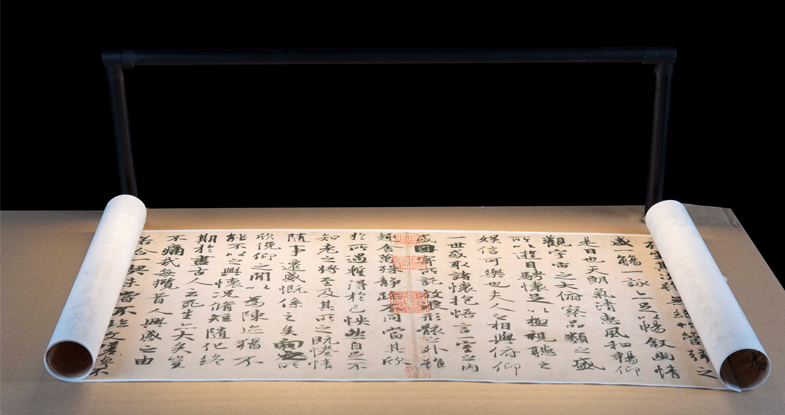 管弦之
盛一觴一詠亦足以暢叙幽情
是日也天朗氣清惠風和暢仰
觀宇宙之大俯察品類之盛
所以遊目騁懷足以極視聽之
娛信可樂也夫人之相與俯仰
一世或取諸懷抱悟言一室之內
或因寄所託放浪形骸之外雖
趣舍萬殊靜躁不同當其欣
於所遇暫得於己快然自足不
知老之將至及其所之既惓情
隨事遷感慨係之矣向之所
欣俛仰之閒以為陳迹猶不
能不以之興懷況脩短隨化終
期於盡古人云死生亦大矣豈
不痛哉每攬昔人興感之由
若合一契未嘗不臨文嗟悼不